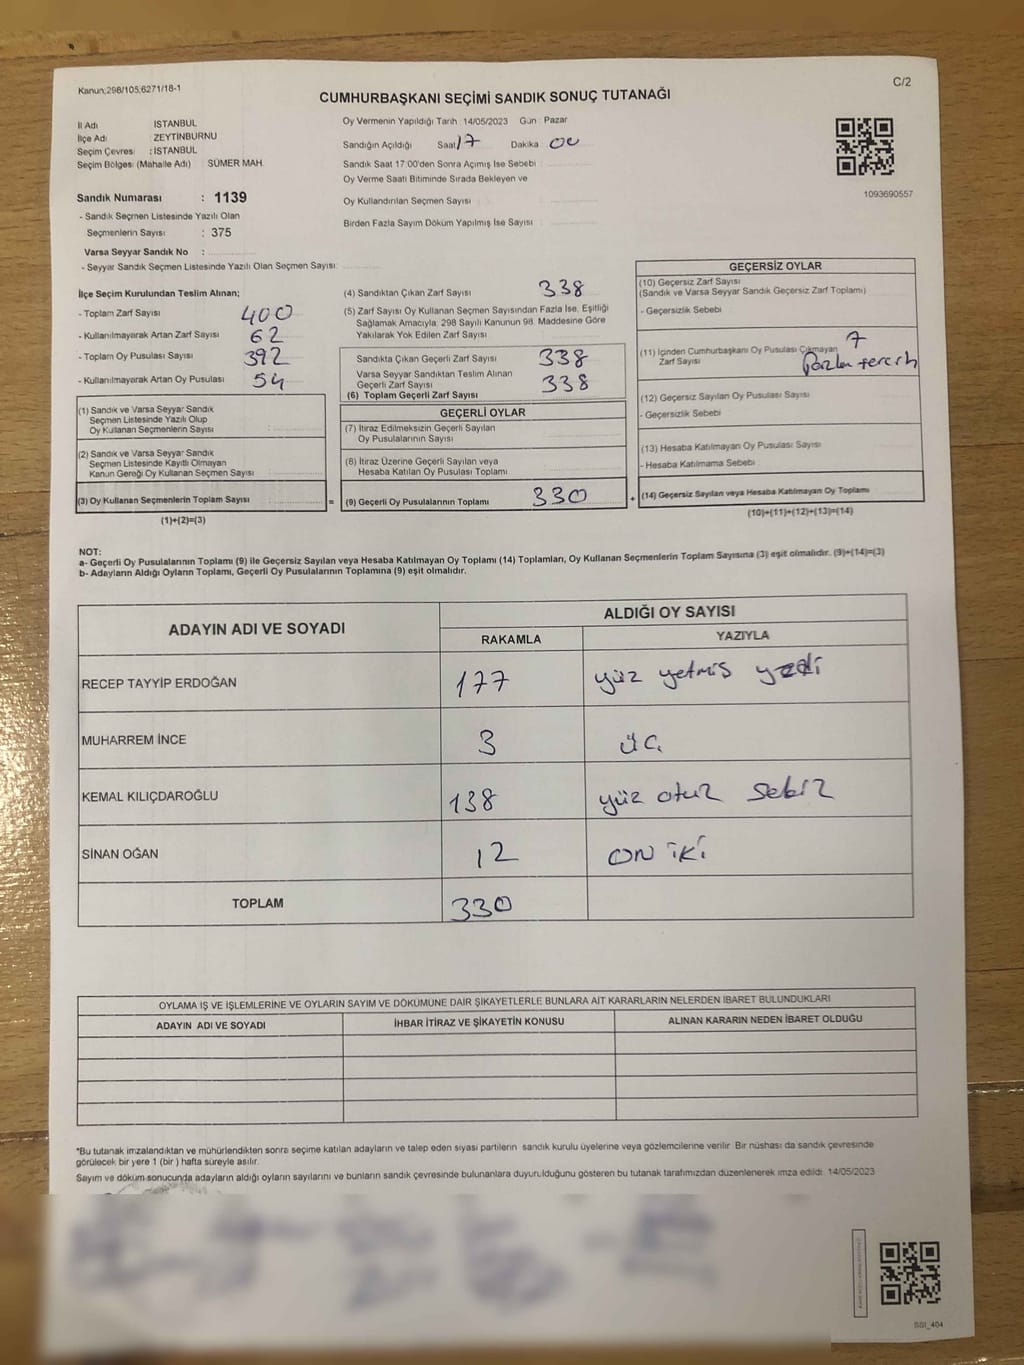 Kanun;298/105;6271/18-1
C/2
CUMHURBAŞKANI SEÇİMİ SANDIK SONUÇ TUTANAĞI
İl Adı İSTANBUL
İlçe Adı : ZEYTİNBURNU
Seçim Çevresi : İSTANBUL
Seçim Bölgesi (Mahalle Adı) SÜMER MAH.
Sandık Numarası : 1139
- Sandık Seçmen Listesinde Yazılı Olan
Seçmenlerin Sayısı : 375
Varsa Seyyar Sandık No :
- Seyyar Sandık Seçmen Listesinde Yazılı Olan Seçmen Sayısı:
Oy Vermenin Yapıldığı Tarih : 14/05/2023 Gün : Pazar
Sandığın Açıldığı Saat 17 Dakika 00
Sandık Saat 17:00'den Sonra Açımış İse Sebebi
Oy Verme Saati Bitiminde Sırada Bekleyen ve
Oy Kullandırılan Seçmen Sayısı :
Birden Fazla Sayım Döküm Yapılmış İse Sayısı :
1093690557
İlçe Seçim Kurulundan Teslim Alınan;
- Toplam Zarf Sayısı 400
- Kullanılmayarak Artan Zarf Sayısı 62
- Toplam Oy Pusulası Sayısı 392
- Kullanılmayarak Artan Oy Pusulası 54
(1) Sandık ve Varsa Seyyar Sandık
Seçmen Listesinde Yazılı Olup
Oy Kullanan Seçmenlerin Sayısı :
(2) Sandık ve Varsa Seyyar Sandık
Seçmen Listesinde Kayıtlı Olmayan
Kanun Gereği Oy Kullanan Seçmen Sayısı :
(3) Oy Kullanan Seçmenlerin Toplam Sayısı : =
(1)+(2)=(3)
(4) Sandıktan Çıkan Zarf Sayısı 338
(5) Zarf Sayısı Oy Kullanan Seçmen Sayısından Fazla İse, Eşitliği
Sağlamak Amacıyla; 298 Sayılı Kanunun 98. Maddesine Göre
Yakılarak Yok Edilen Zarf Sayısı
Sandıkta Çıkan Geçerli Zarf Sayısı 338
Varsa Seyyar Sandıktan Teslim Alınan
Geçerli Zarf Sayısı 338
(6) Toplam Geçerli Zarf Sayısı :
GEÇERLİ OYLAR
(7) İtiraz Edilmeksizin Geçerli Sayılan
Oy Pusulalarının Sayısı
(8) İtiraz Üzerine Geçerli Sayılan veya
Hesaba Katılan Oy Pusulası Toplamı
(9) Geçerli Oy Pusulalarının Toplamı 330 +
GEÇERSİZ OYLAR
(10) Geçersiz Zarf Sayısı
(Sandık ve Varsa Seyyar Sandık Geçersiz Zarf Toplamı)
- Geçersizlik Sebebi
(11) İçinden Cumhurbaşkanı Oy Pusulası Çıkmayan 7
Zarf Sayısı fazla tercih
(12) Geçersiz Sayılan Oy Pusulası Sayısı
- Geçersizlik Sebebi
(13) Hesaba Katılmayan Oy Pusulası Sayısı
- Hesaba Katılmama Sebebi
(14) Geçersiz Sayılan veya Hesaba Katılmayan Oy Toplamı
(10)+(11)+(12)+(13)=(14)
NOT:
a- Geçerli Oy Pusulalarının Toplamı (9) ile Geçersiz Sayılan veya Hesaba Katılmayan Oy Toplamı (14) Toplamları, Oy Kullanan Seçmenlerin Toplam Sayısına (3) eşit olmalıdır. (9)+(14)=(3)
b- Adayların Aldığı Oyların Toplamı, Geçerli Oy Pusulalarının Toplamına (9) eşit olmalıdır.
ADAYIN ADI VE SOYADI ALDIĞI OY SAYISI
RAKAMLA YAZIYLA
RECEP TAYYİP ERDOĞAN 177 yüz yetmiş yedi
MUHARREM İNCE 3 üç
KEMAL KILIÇDAROĞLU 138 yüz otuz sekiz
SİNAN OĞAN 12 on iki
TOPLAM 330
OYLAMA İŞ VE İŞLEMLERİNE VE OYLARIN SAYIM VE DÖKÜMÜNE DAİR ŞİKAYETLERLE BUNLARA AİT KARARLARIN NELERDEN İBARET BULUNDUKLARI
ADAYIN ADI VE SOYADI İHBAR İTİRAZ VE ŞİKAYETİN KONUSU ALINAN KARARIN NEDEN İBARET OLDUĞU
*Bu tutanak imzalandıktan ve mühürlendikten sonra seçime katılan adayların ve talep eden siyasi partilerin sandık kurulu üyelerine veya gözlemcilerine verilir Bir nüshası da sandık çevresinde
görülecek bir yere 1 (bir ) hafta süreyle asılır.
Sayım ve döküm sonucunda adayların aldığı oyların sayılarını ve bunların sandık çevresinde bulunanlara duyurulduğunu gösteren bu tutanak tarafımızdan düzenlenerek imza edildi. 14/05/2023
SSI_404